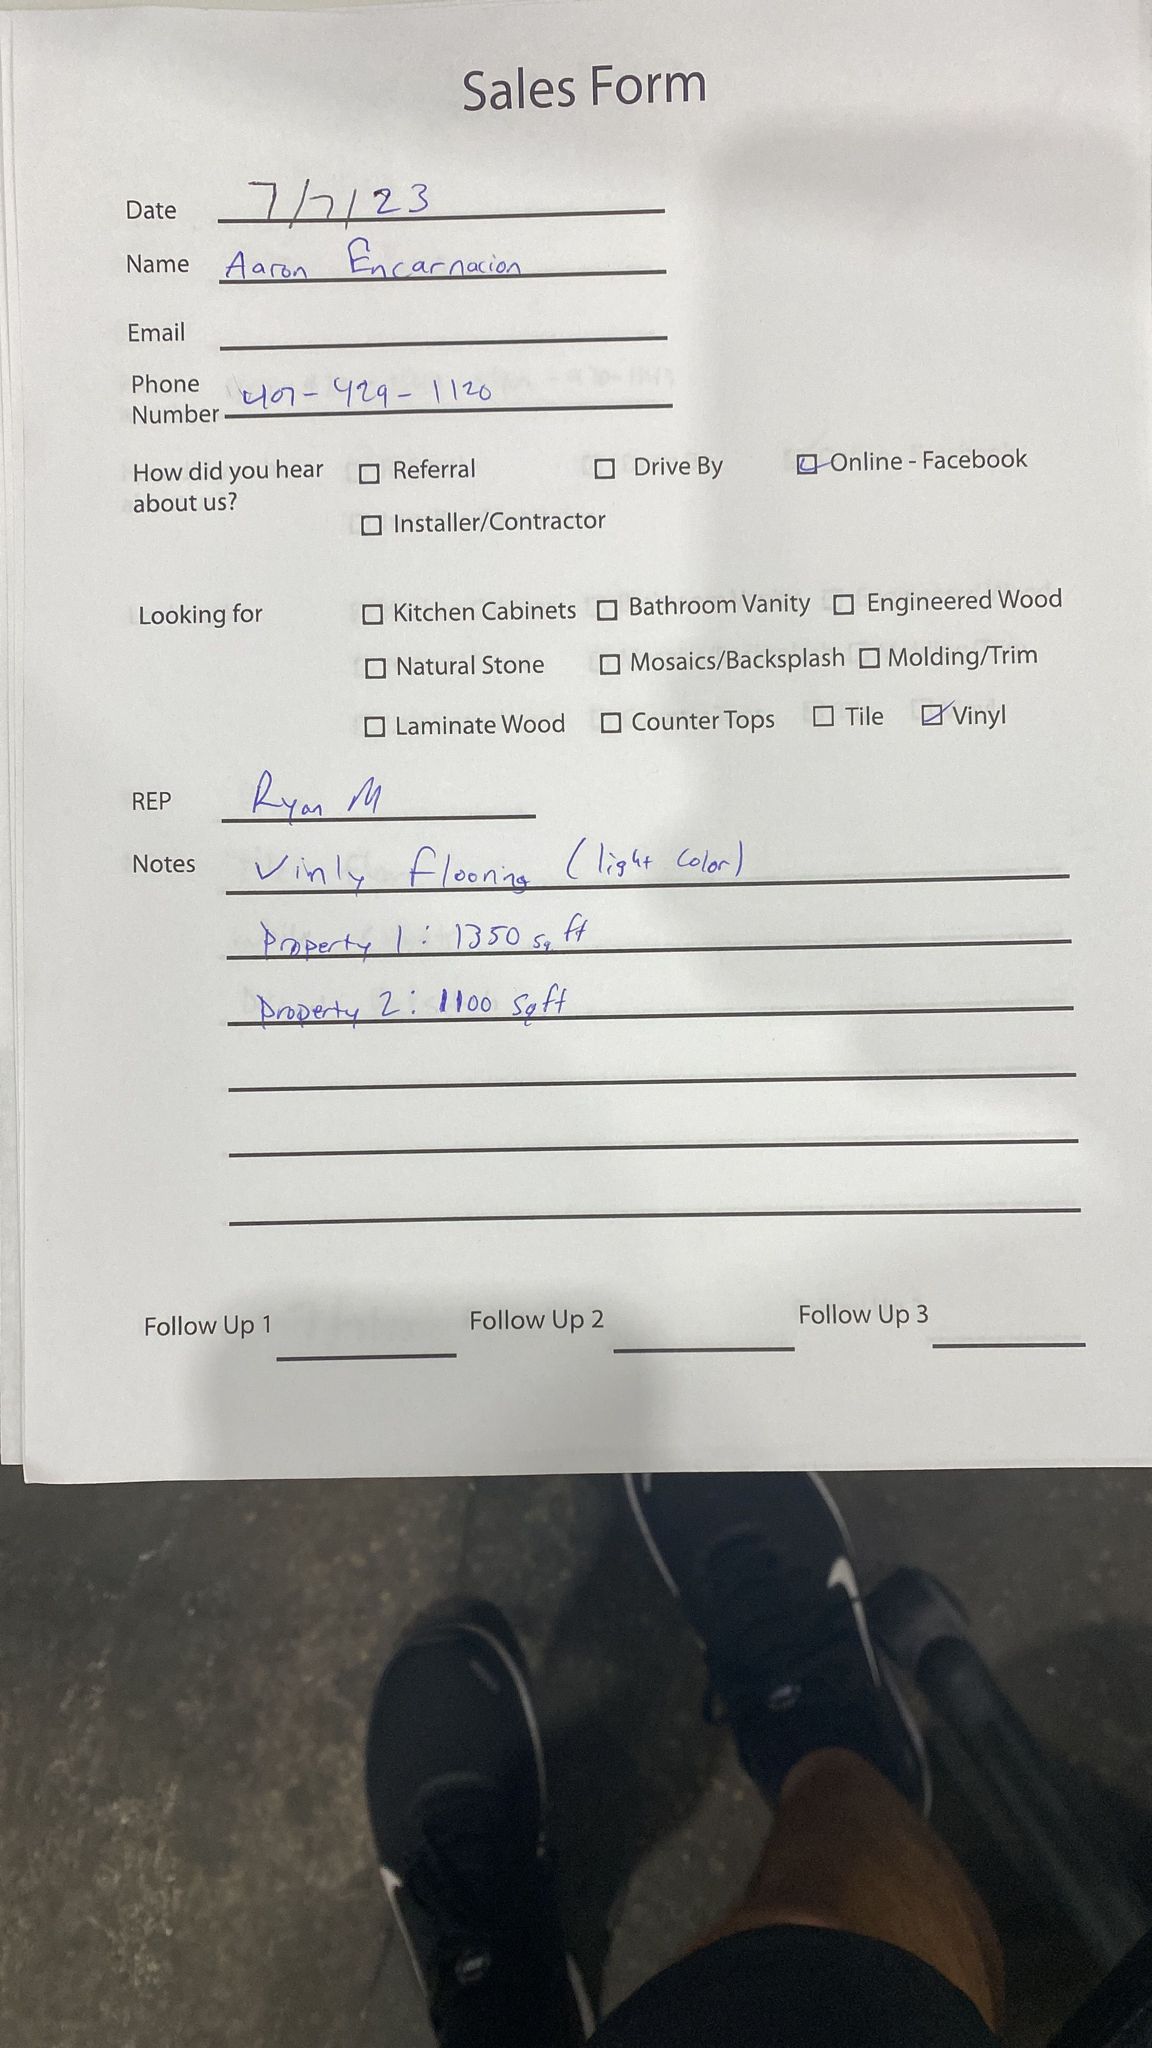 Sales Form
Date 7/7/23
Name Aaron Encarnacion
Email
Phone
Number 407-429-1120
How did you hear ☐ Referral ☐ Drive By ☑ Online - Facebook
about us?
☐ Installer/Contractor
Looking for ☐ Kitchen Cabinets ☐ Bathroom Vanity ☐ Engineered Wood
☐ Natural Stone ☐ Mosaics/Backsplash ☐ Molding/Trim
☐ Laminate Wood ☐ Counter Tops ☐ Tile ☑ Vinyl
REP Ryan M
Notes Vinly flooring (light color)
Property 1: 1350 sq ft
Property 2: 1100 sqft
Follow Up 1 Follow Up 2 Follow Up 3